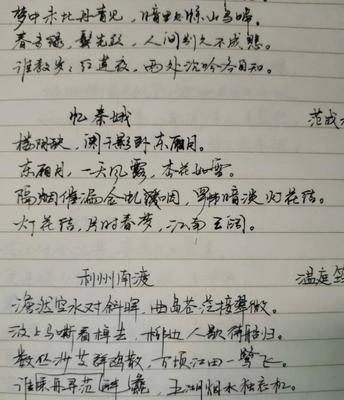 梦中未比丹青见，暗里忽惊山鸟啼。
春未绿，鬓先丝，人间别久不成悲。
谁教岁岁红莲夜，两处沉吟各自知。
忆秦娥 范成
楼阴缺，阑干影卧东厢月。
东厢月，一天风露，杏花如雪。
隔烟催漏金虬咽，罗帏暗淡灯花结。
灯花结，片时春梦，江南天阔。
利州南渡 温庭筠
澹然空水对斜晖，曲岛苍茫接翠微。
波上马嘶看棹去，柳边人歇待船归。
数丛沙草群鸥散，万顷江田一鹭飞。
谁解乘舟范蠡，五湖烟水独忘机。